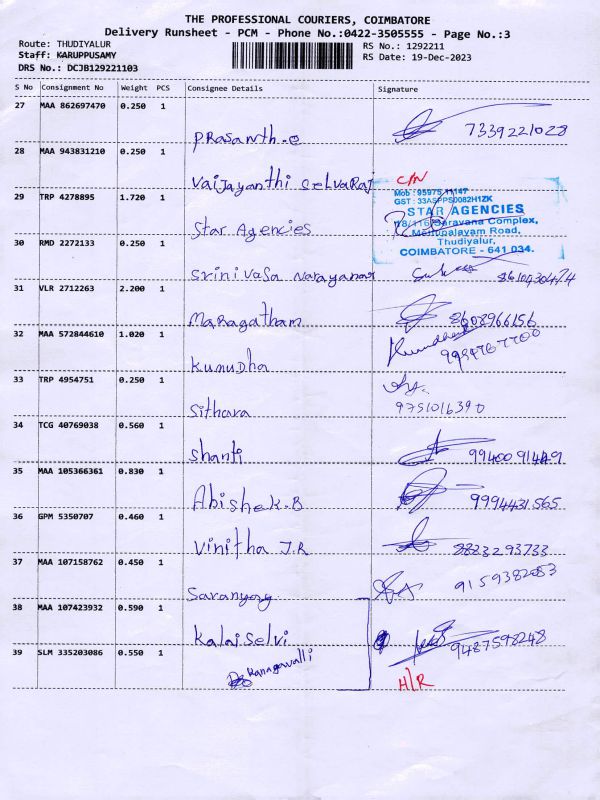 THE PROFESSIONAL COURIERS, COIMBATORE
Delivery Runsheet - PCM - Phone No.:0422-3505555 - Page No.:3
Route: THUDIYALUR
RS No.: 1292211
Staff: KARUPPUSAMY
RS Date: 19-Dec-2023
DRS No.: DCJB129221103
S No Consignment No Weight PCS Consignee Details Signature
27 MAA 862697470 0.250 1
PRasanth.G 7339221028
28 MAA 943831210 0.250 1
Vaijayanthi SelvaRaj C/N
29 TRP 4278895 1.720 1
Mob : 95975 11147
GST : 33ASPPS0082H1ZK
STAR AGENCIES
18/116 Saravana Complex,
Mettupalayam Road,
Thudiyalur,
COIMBATORE - 641 034.
Star Agencies
30 RMD 2272133 0.250 1
Srinivasa Narayanan
31 VLR 2712263 2.200 1
Maragatham 8608966156
32 MAA 572844610 1.020 1
Kumudha
33 TRP 4954751 0.250 1
Sithara 9751016390
34 TCG 40769038 0.560 1
Shanti
35 MAA 105366361 0.830 1
Abishek.B 9994431565
36 GPM 5350707 0.460 1
Vinitha J.R
37 MAA 107158762 0.450 1
9159382053
38 MAA 107423932 0.590 1
Kalai Selvi 9487598248
39 SLM 335203086 0.550 1
Kanagavalli
H/R